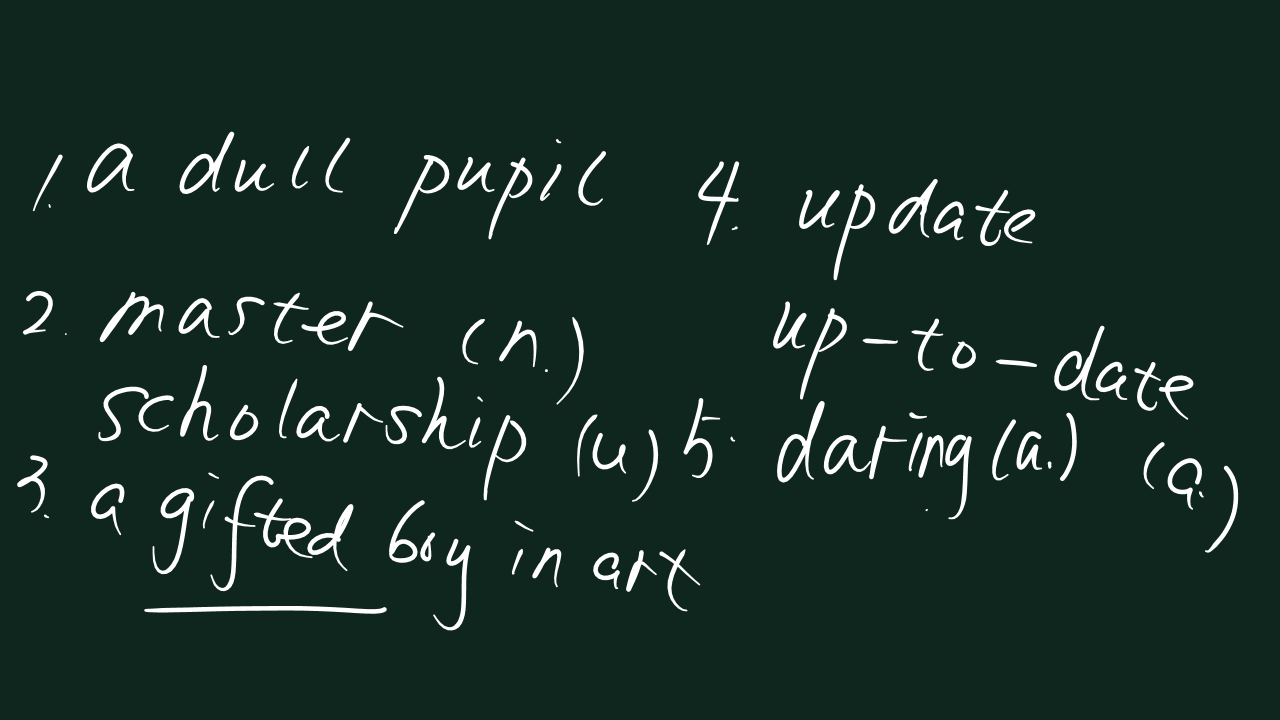 1. a dull pupil
2. master (n.)
scholarship (u)
3. a gifted boy in art
4. update
up-to-date (a.)
5. daring (a.)